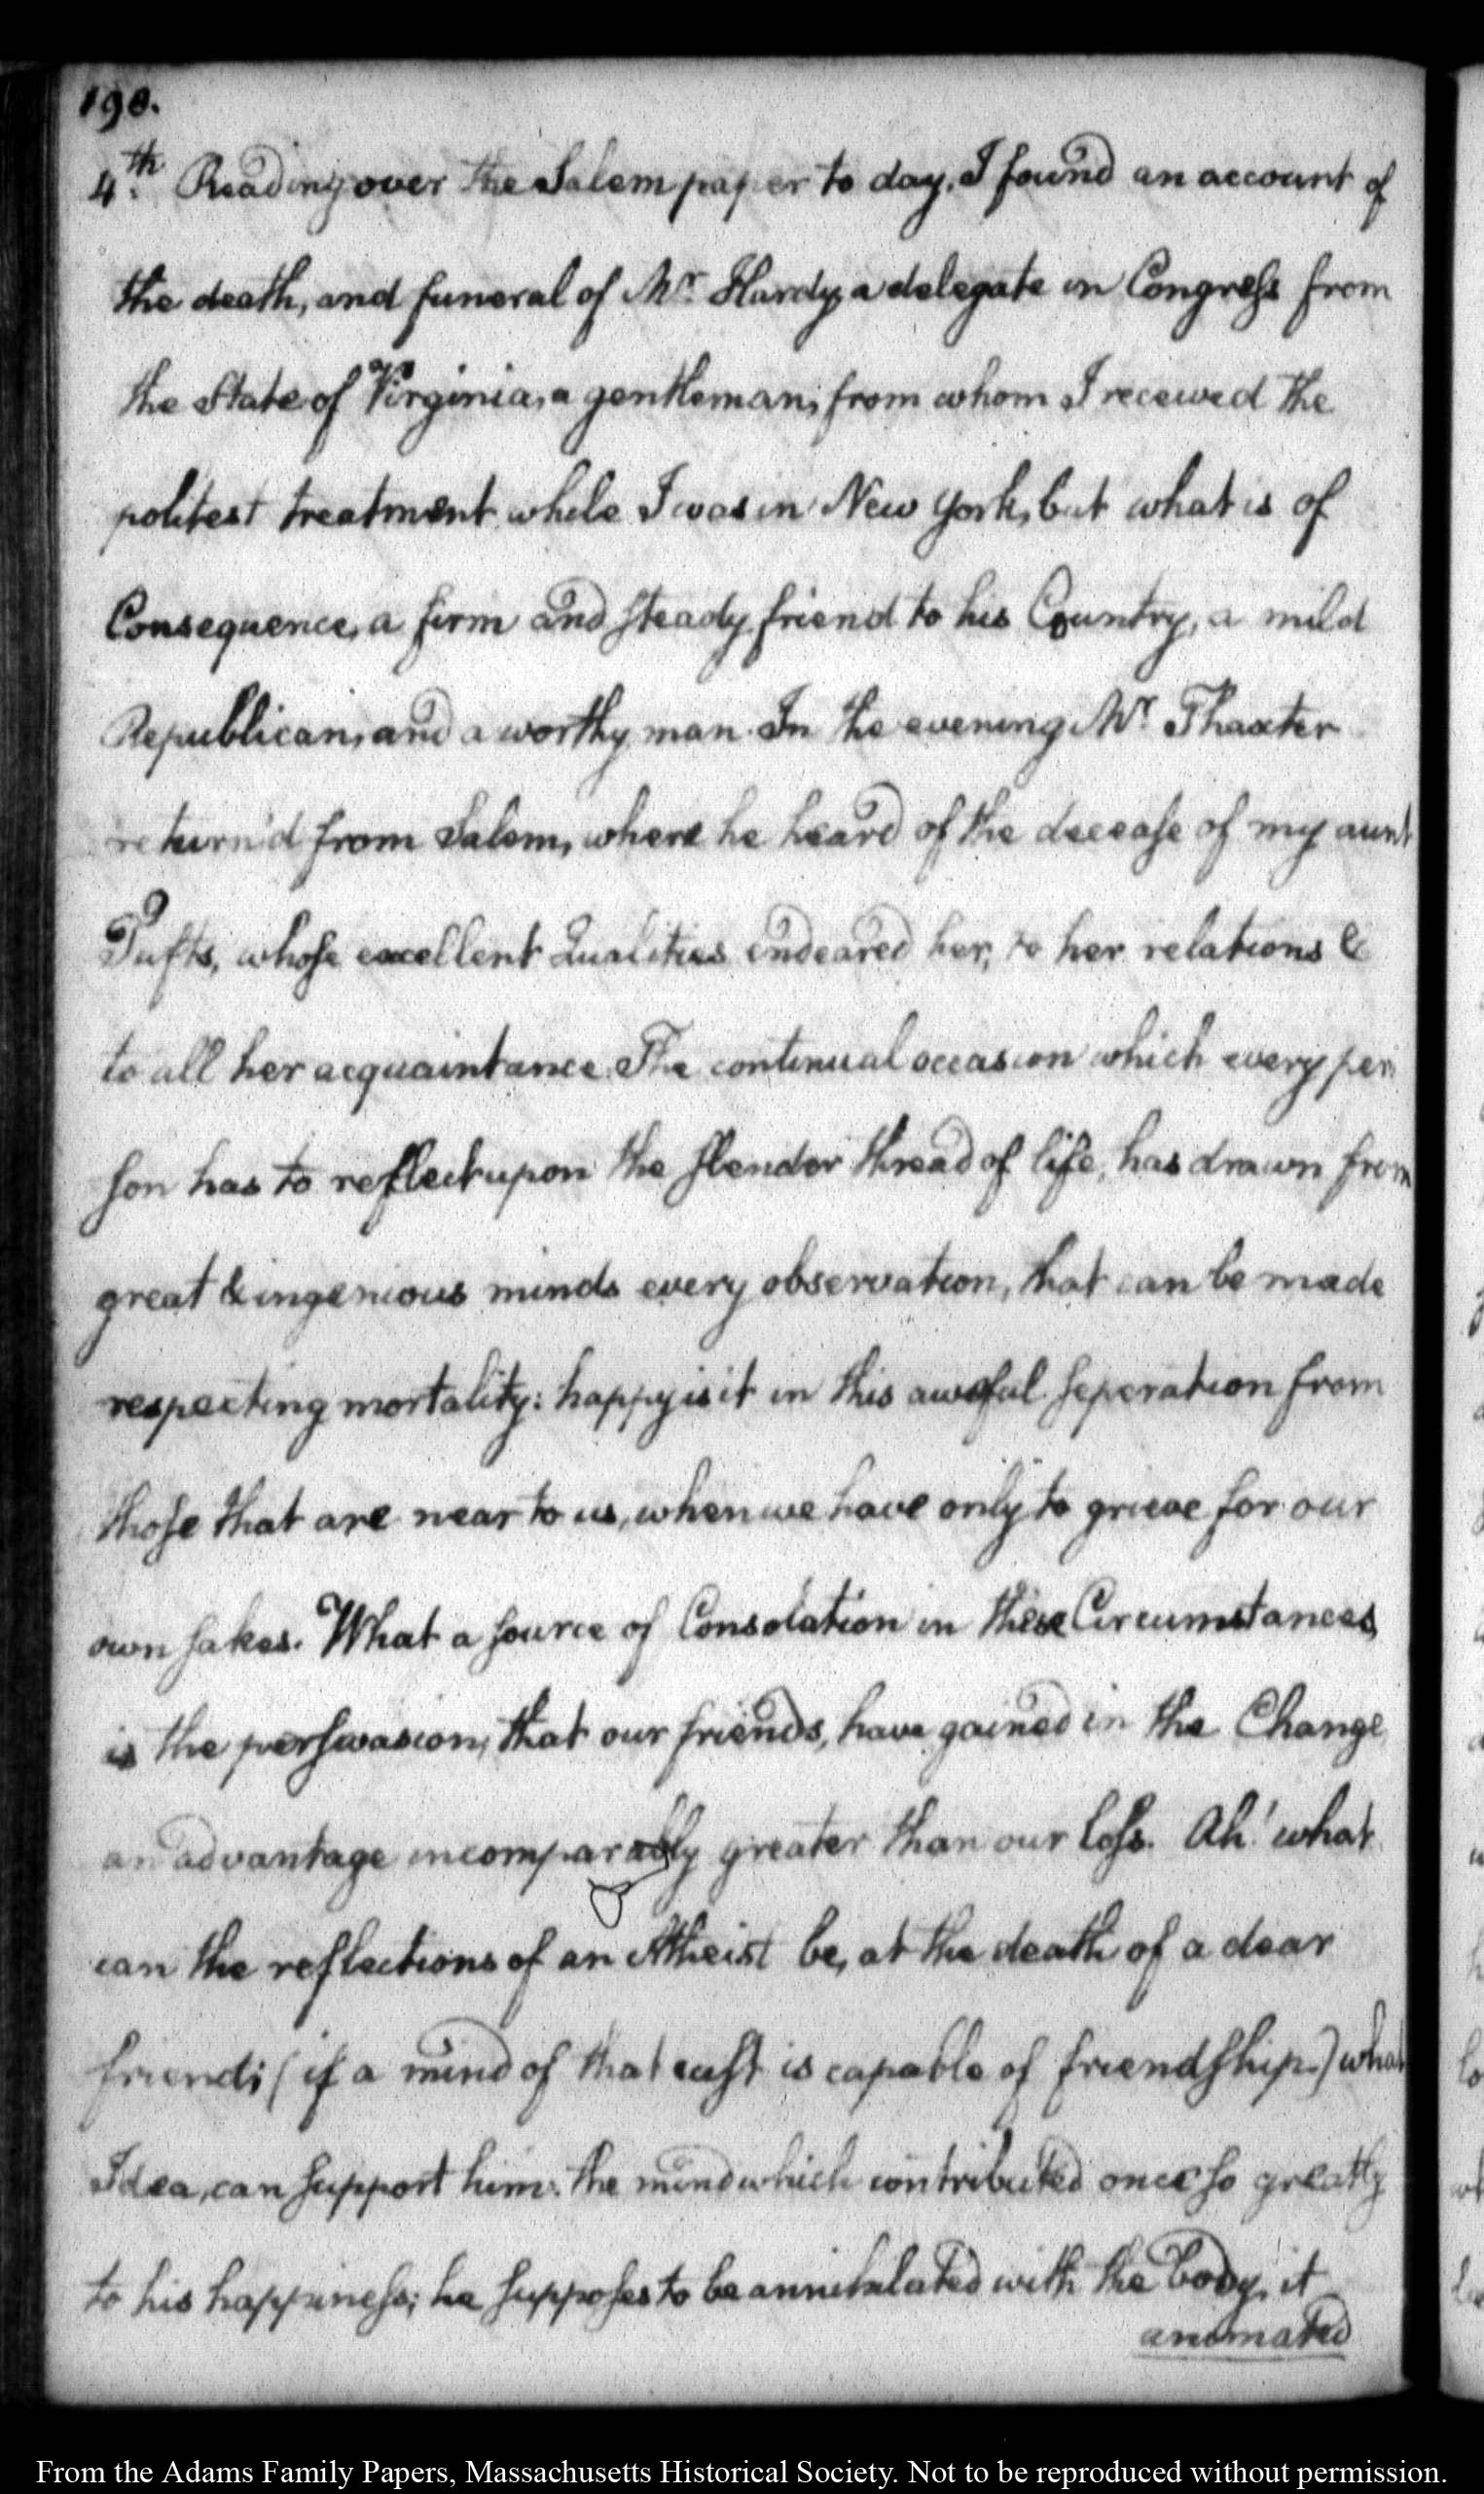 190.
4th. Reading over the Salem paper to day, I found an account of
the death, and funeral of Mr. Hardy, a delegate in Congress from
the State of Virginia, a gentleman, from whom I received the
politest treatment while I was in New York, but what is of
Consequence, a firm and steady friend to his Country, a mild
Republican, and a worthy man. In the evening Mr. Thaxter
return'd from Salem, where he heard of the decease of my aunt
Tufts, whose excellent Qualities endeared her, to her relations &
to all her acquaintance. The continual occasion which every per
son has to reflect upon the slender thread of life, has drawn from
great & ingenious minds every observation, that can be made
respecting mortality: happy is it in this aweful seperation from
those that are near to us, when we have only to grieve for our
own sakes. What a source of Consolation in these Circumstances,
is the perswasion, that our friends, have gained in the Change
an advantage incomparably greater than our loss. Ah! what
can the reflections of an Atheist be, at the death of a dear
friend; (if a mind of that cast is capable of friendship.) what
Idea, can support him: the mind which contributed once so greatly
to his happiness; he supposes to be annihilated with the body, it
animated
From the Adams Family Papers, Massachusetts Historical Society. Not to be reproduced without permission.